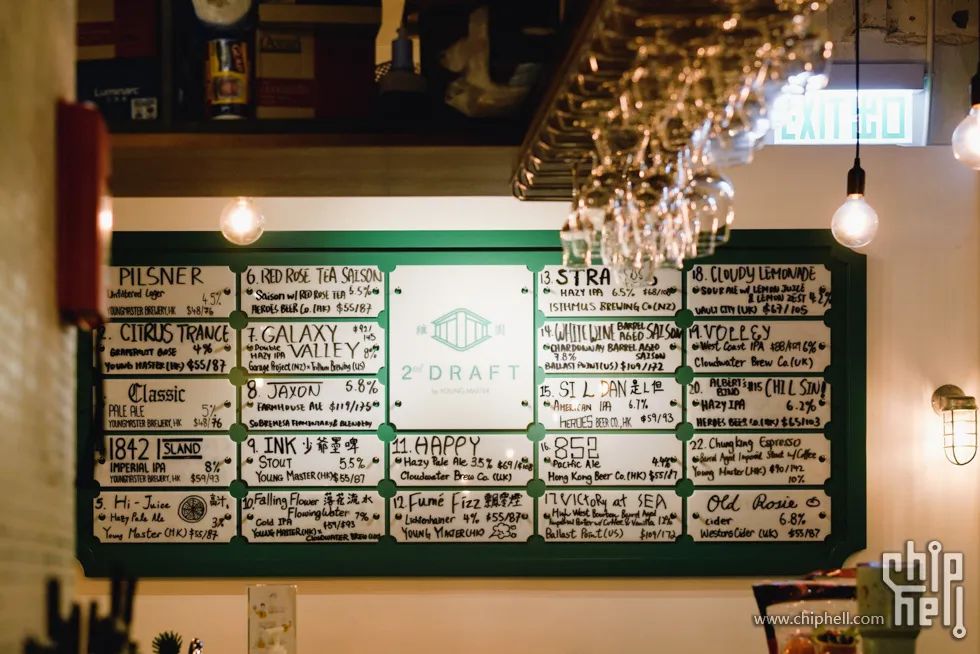 Luminarc
EXIT
PILSNER
Unfiltered Lager
4.5%
YOUNGMASTER BREWERY, HK $48/76
2. CITRUS TRANCE
GRAPEFRUIT GOSE 4%
YOUNG MASTER (HK) $55/87
Classic
PALE ALE 5%
YOUNGMASTER BREWERY, HK $48/76
1842 ISLAND
IMPERIAL IPA 8%
YOUNGMASTER BREWERY, HK $59/93
5. Hi-Juice
Hazy Pale Ale 3%
Young Master (HK) $55/87
6. RED ROSE TEA SAISON
Saison w/ RED ROSE TEA 5.5%
HEROES BEER Co. (HK) $55/87
7. GALAXY
VALLEY
Double
HAZY IPA 8%
Garage Project (NZ) x Trillium Brewing (US)
8. JAXON 5.8%
FARMHOUSE ALE $119/175
SOBREMESA FERMENTARY & BLENDERY
9. INK 少爺墨啤
STOUT 5.5%
YOUNG MASTER (HK) $55/87
10. Falling Flower 落花流水
Flowing Water 7%
Cold IPA $59/93
YOUNG MASTER (HK) x
CLOUDWATER BREW (UK)
維 園
2nd DRAFT
by YOUNG MASTER
11. HAPPY
Hazy Pale Ale 3.5% $69/108
Cloudwater Brew Co. (UK)
12. Fumé Fizz 飄飄煙
Lichtenhainer 4% $55/87
YOUNG MASTER (HK)
13. STRA
HAZY IPA 6.5% $68/10
ISTHMUS BREWING Co (NZ)
14. WHITE WINE BARREL AGED SAISON
CHARDONNAY BARREL AGED
7.8% SAISON
BALLAST POINT (US) $109/172
15. SI L DAN 是L但
AMERICAN IPA 6.7%
HEROES BEER CO., HK $59/93
16. 852
Pacific Ale
Hong Kong Beer Co. (HK) $55/87
17. VICTORY at SEA
High West Bourbon Barrel Aged
Imperial Porter w/ Coffee & Vanilla 12%
Ballast Point (US) $109/172
18. CLOUDY LEMONADE
SOUR ALE w/ LEMON JUICE
& LEMON ZEST 4.2%
VAULT CITY (UK) $67/105
19. VOLLEY
West Coast IPA 6%
Cloudwater Brew Co (UK)
20. ALBERT'S
BIND
CHI L SIN
HAZY IPA 6.2%
HEROES BEER Co. (HK) $65/103
22. Chungking Espresso
Barrel Aged Imperial Stout w/ Coffee
Young Master (HK) $90/142
10%
Old Rosie
Cider 6.8%
Westons Cider (UK) $55/87
chip
hell
www.chiphell.com